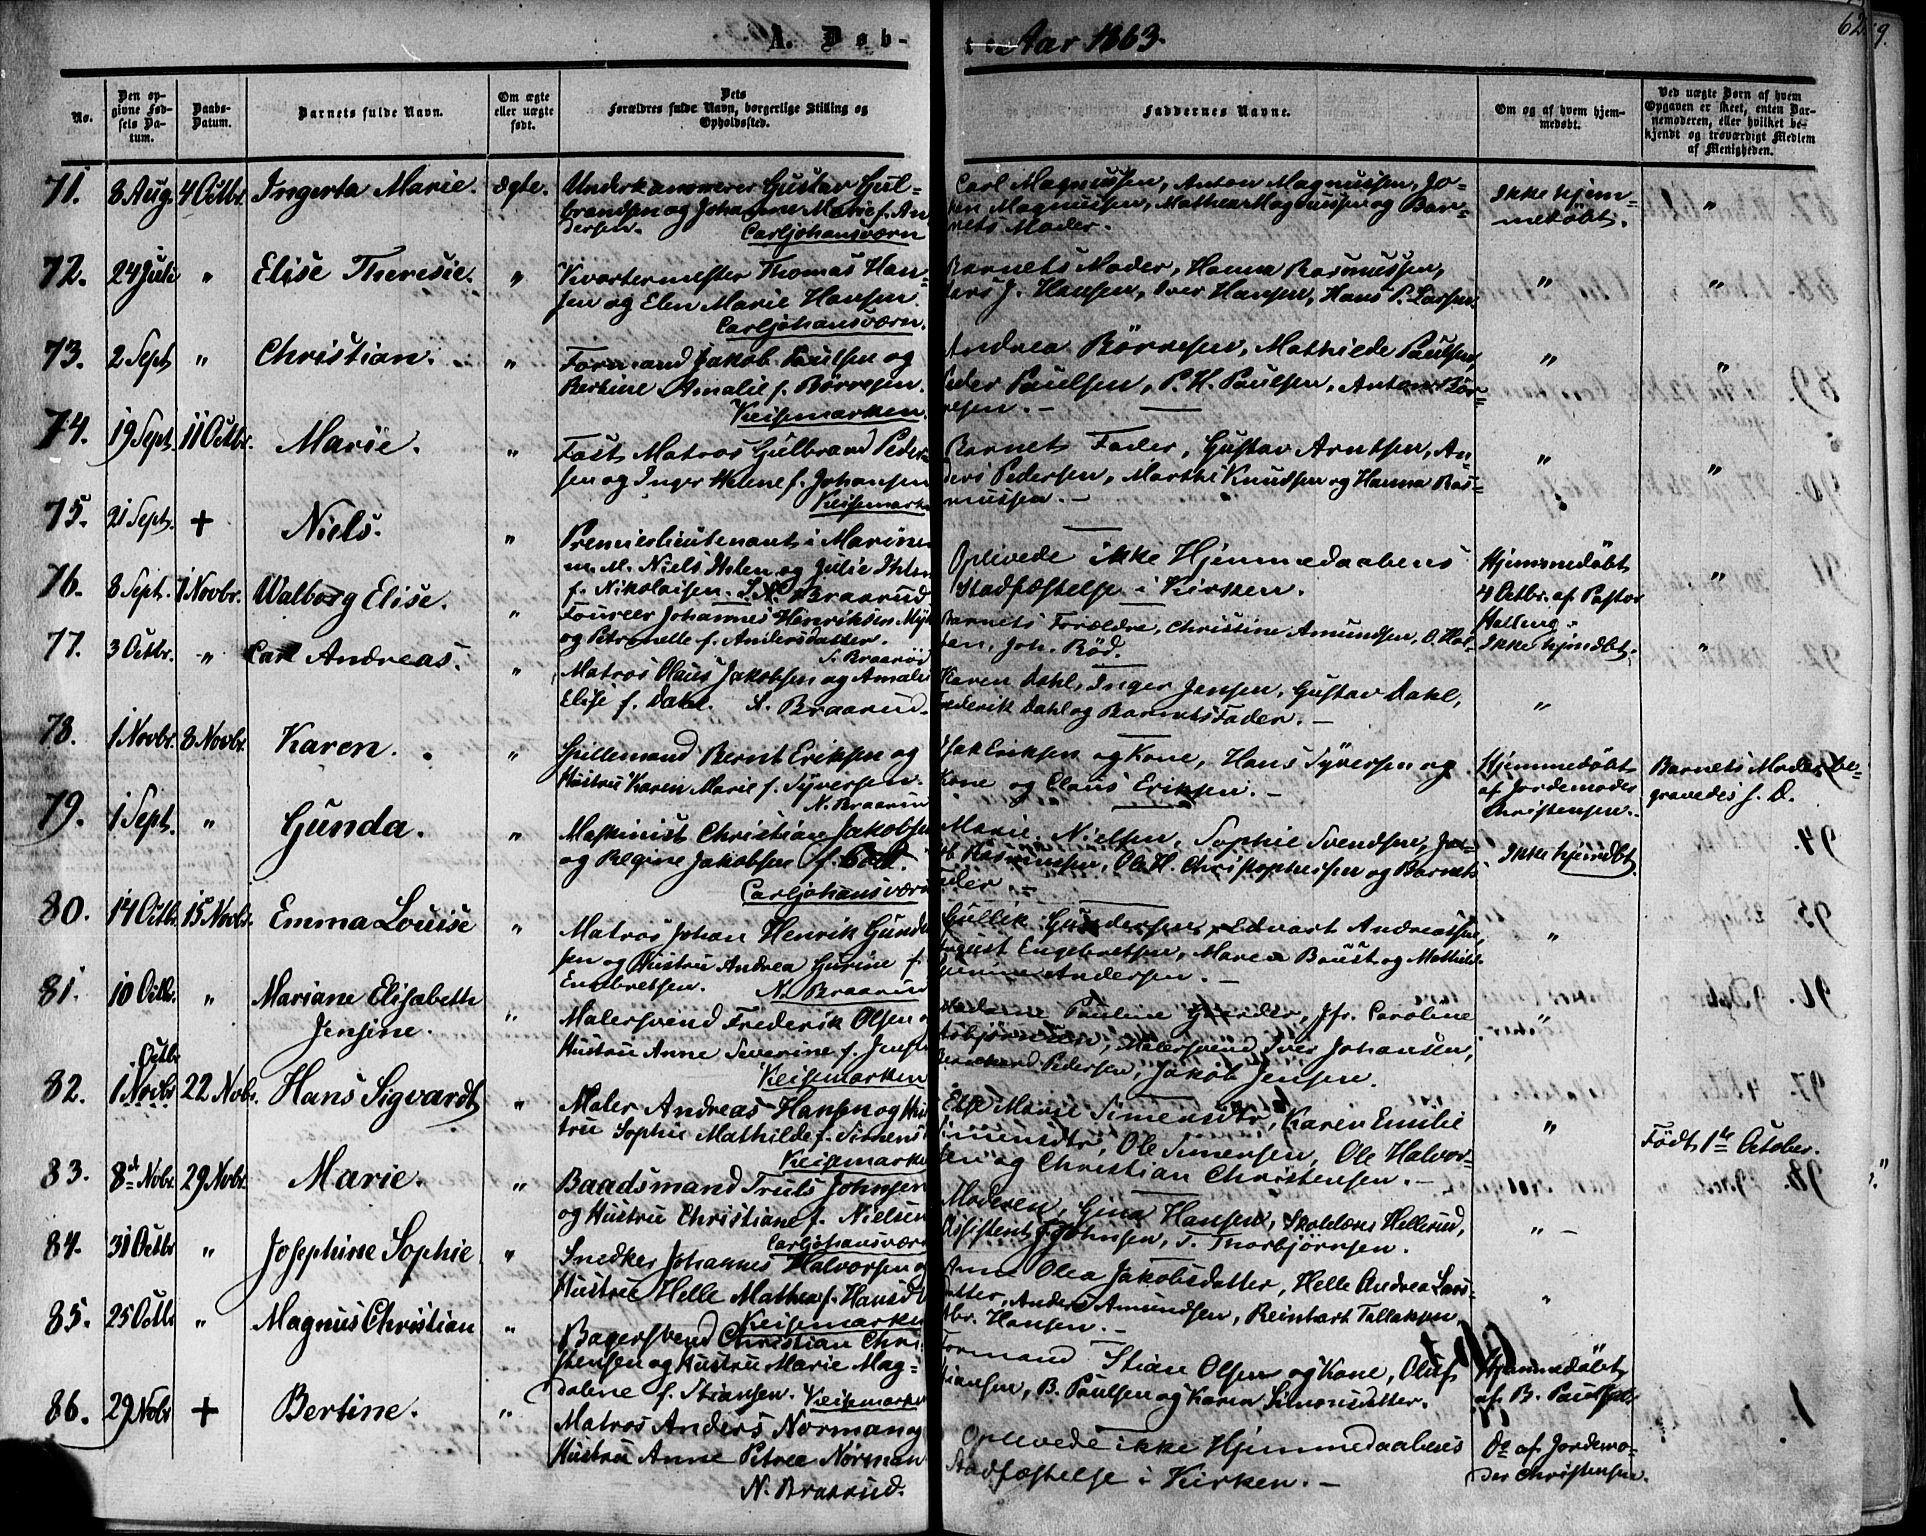 A. Døb-
te Aar 1863.
62
9.
No.
Den opgivne Fødsels Datum.
Daabs-Datum.
Barnets fulde Navn.
Om ægte eller uægte født.
Dets Forældres fulde Navn, borgerlige Stilling og Opholdssted.
Faddernes Navne.
Om og af hvem hjemmedøbt.
Ved uægte Børn af hvem Opgaven er skeet, enten Barnemoderen, eller hvilket bekjendt og troværdigt Medlem af Menigheden.
71. 8 Aug. 4 Octbr. Ingerta Marie. ægte. Underkanonerer Gustav Gul-
brandsen og Johanne Marie f. An
dersen. Carljohansværn
Carl Magnussen, Anton Magnussen, Jo-
Magnussen, Mathea Magnussen og Bar-
nets Moder.
Ikke hjem-
medøbt. "
72. 24 Juli " Elise Theresie. " Kvartermester Thomas Han-
sen og Elen Marie Hansen
Carljohansværn.
Barnets Moder, Hanna Rasmussen,
Lars J. Hansen, Iver Hansen, Hans P. Larsen.
" "
73. 2 Sept " Christian. " Formand Jakob Paulsen og
Bertine Amalie f. Börresen.
Keisemarken.
Andrea Börresen, Mathilde Paulsen,
Peder Paulsen, P. H. Paulsen, Anton Bör-
resen. —
" "
74. 19 Sept. 11 Octbr. Marie. " Fast Matros Gulbrand Peder-
sen og Inger Helene f. Johansen
Keisemark
Barnets Fader, Gustav Arntsen, An-
ders Pedersen, Marthe Knudsen og Hanna Ras-
mussen. —
" "
75. 21 Sept. + Niels. " Premierlieutenant i Marinen
m. M. Niels Ihlen og Julie Ihlen
f. Nikolaisen. S. N. Braarud
Oplevede ikke Hjemmedaabens
Stadfæstelse i Kirken.
Hjemmedöbt
4 Octbr. af Pastor
Halling. "
76. 8 Sept. 1 Novbr. Walborg Elise. " Foureer Johannes Henriksen Myh
og Petronelle f. Andersdatter.
S. Braarud
Barnets Forældre, Christine Amundsen, O. Hol-
ten, Joh. Röd.
Ikke hjmdbt. "
77. 3 Octbr. " Carl Andreas. " Matros Claus Jakobsen og Amalie
Elise f. Dahl. S. Braarud.
Karen Dahl, Inger Jensen, Gustav Dahl,
Frederik Dahl og Barnets Fader. —
"
78. 1 Novbr. 8 Novbr. Karen. " Spillemand Bernt Eriksen og
Hustru Karen Marie f. Syversen.
N. Braarud
Isak Eriksen og Kone, Hans Syversen og
Kone og Claus Eriksen. —
Hjemmedöbt
af Jordemoder
Christensen.
Barnets Moder be-
gravedes s. D.
79. 1 Sept. " Gunda. " Maskinist Christian Jakobsen
og Regine Jakobsen f.
Carljohansværn
Marie Nielsen, Sophie Svendsen, Ja-
Rasmussen, Ole H. Christophersen og Barnets
Fader. —
Ikke hjmdbt.
80. 14 Octbr. 15 Novbr. Emma Louise " Matros Johan Henrik Gunder
sen og Hustru Andrea Gurine f.
Engebretsen. N. Braarud
Gullik Gundersen, Edvart Andreassen,
August Engebretsen, Maren Baust og Mathilde
Andersen. —
"
81. 10 Octbr. " Mariane Elisabeth
Jensine. " Malersvend Frederik Olsen og
Hustru Anne Severine f. Jensen
Keisemarken
Madame Pauline, Jfr. Caroline
Asbjörnsen, Malersvend Iver Johansen,
Bernhard Pedersen, Jakob Jensen.
"
82. Octbr
1 Novbr 22 Nobr. Hans Sigvardt " Maler Andreas Hansen og Hus
tru Sophie Mathilde f. Simens
Keisemarke
Else Marie Simensdtr, Karen Emilie
Simensdtr, Ole Simensen, Ole Halvor-
sen og Christian Christensen. —
" Født 1te October.
83. 8de Nobr. 29 Nobr. Marie. " Baadsmand Truls Johnsen
og Hustru Christiane f. Nielsen
Carljohansværn
Moderen, Gina Hansen, Skolelærer Hellerud,
Assistent Johnsen, T. Thorbjörnsen.
" —
84. 31 Octbr " Josephine Sophie. " Snedker Johannes Halvorsen og
Hustru Helle Mathea f. Hansd
Keisemarken
Anne Olea Jakobsdatter, Helle Andrea Lars-
datter, Anders Amundsen, Reinhart Tallaksen,
Hansen. —
"
85. 25 Octbr " Magnus Christian " Bagersvend Christian Chri
stensen og Hustru Marie Mag-
dalene f. Stiansen. Keisemarken
Formand Stian Olsen og Kone, Oluf
Stiansen, B. Paulsen og Karen Simonsdatter.
Hjemmedöbt
af B. Paulsen. "
86. 29 Nobr + Bertine. " Matros Anders Norman og
Hustru Anne Petrea Norman
N. Braarud.
Oplevede ikke Hjemmedaabens
Stadfæstelse i Kirken. —
Do af Jordemo-
der Christensen.